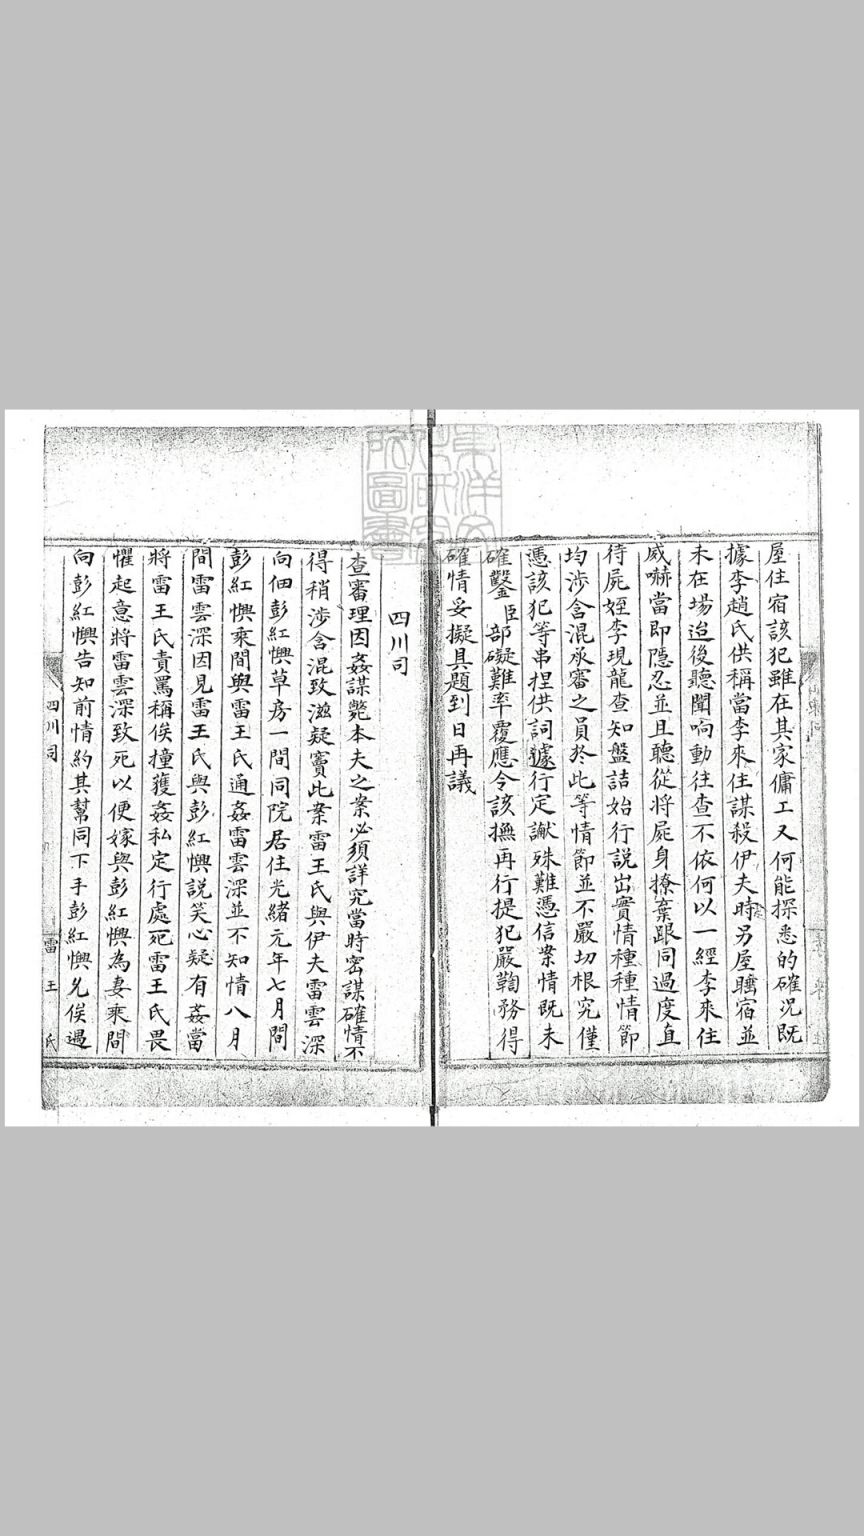 屋住宿該犯雖在其家傭工又何能探悉的確況既
據李趙氏供稱當李來住謀殺伊夫時另屋睡宿並
未在場迨後聽聞响動往查不依何以一經李來住
威嚇當即隱忍並且聽從將屍身撩棄跟同過度直
待屍姪李現龍查知盤詰始行説出實情種種情節
均涉含混承審之員於此等情節並不嚴切根究僅
憑該犯等串捏供詞遽行定讞殊難憑信案情既未
確鑿臣部礙難率覆應令該撫再行提犯嚴鞫務得
確情妥擬具題到日再議
四川司
查審理因姦謀斃本夫之案必須詳究當時密謀確情不
得稍涉含混致滋疑竇此案雷王氏與伊夫雷雲深
向佃彭紅懊草房一間同院居住光緒元年七月間
彭紅懊乘間與雷王氏通姦雷雲深並不知情八月
間雷雲深因見雷王氏與彭紅懊説笑心疑有姦當
將雷王氏責罵稱俟撞獲姦私定行處死雷王氏畏
懼起意將雷雲深致死以便嫁與彭紅懊為妻乘間
向彭紅懊告知前情約其幫同下手彭紅懊允俟過
四川司
雷王氏
東洋文
化研究
所圖書